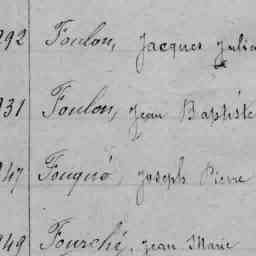 292 Foulon, Jacques Julie
931 Foulon, Jean Baptiste
947 Fouqué, Joseph Pierre
949 Fourché, Jean Marie